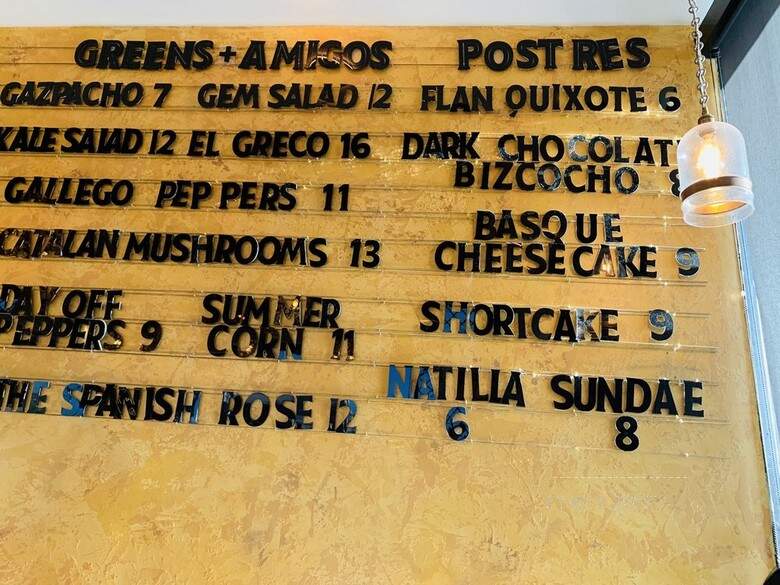 GREENS + AMIGOS
GAZPACHO 7 GEM SALAD 12
KALE SALAD 12 EL GRECO 16
GALLEGO PEPPERS 11
CATALAN MUSHROOMS 13
DAY OFF
PEPPERS 9
SUMMER
CORN 11
THE SPANISH ROSE 12
POSTRES
FLAN QUIXOTE 6
DARK CHOCOLAT
BIZCOCHO 8
BASQUE
CHEESECAKE 9
SHORTCAKE 9
NATILLA
6
SUNDAE
8